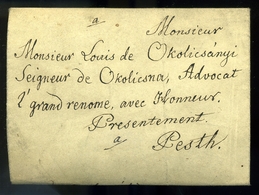 a Monsieur
Monsieur Louis de Okolicsányi
Seigneur de Okolicsna, Advocat
l'grand renome, avec Honneur.
Presentement.
a Pesth.